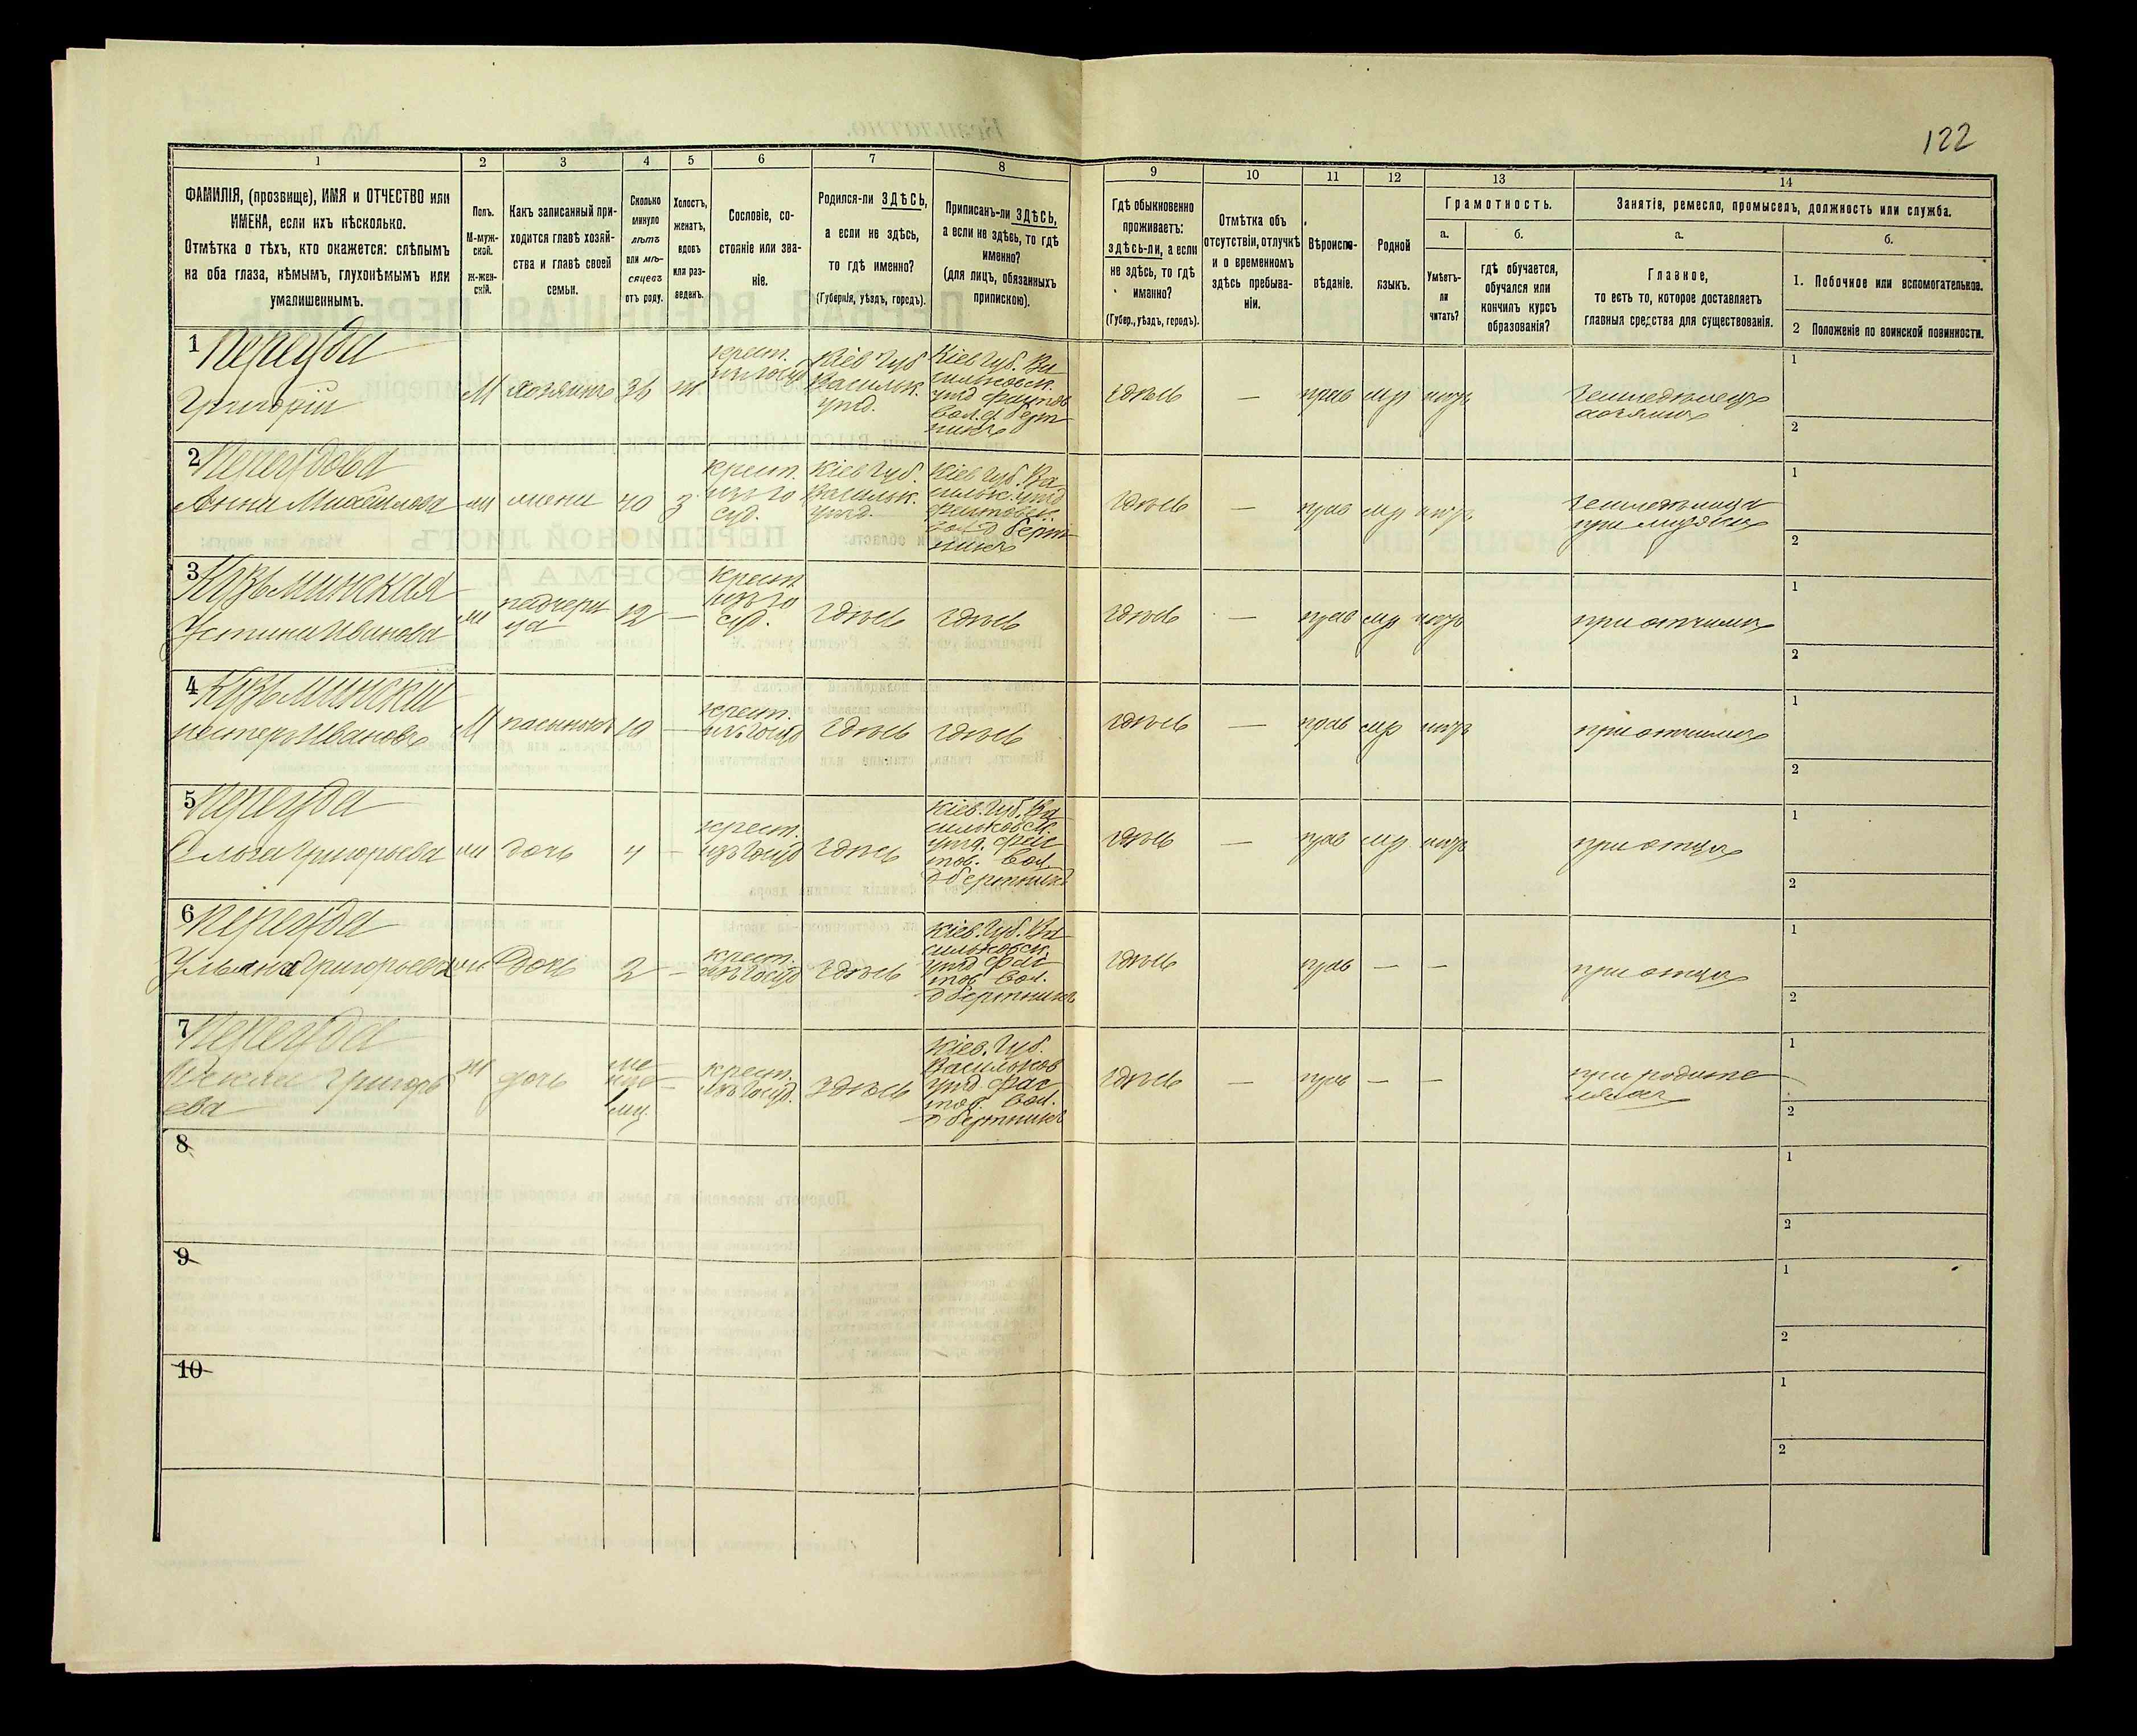 122
1
2
3
4
5
6
7
8
9
10
11
12
13
14
ФАМИЛІЯ, (прозвище), ИМЯ и ОТЧЕСТВО или
ИМЕНА, если ихъ нѣсколько.
Отмѣтка о тѣхъ, кто окажется: слѣпымъ
на оба глаза, нѣмымъ, глухонѣмымъ или
умалишеннымъ.
Полъ.
М-муж-
ской.
ж-жен-
скій.
Какъ записанный при-
ходится главѣ хозяй-
ства и главѣ своей
семьи.
Сколько
минуло
лѣтъ
или мѣ-
сяцевъ
отъ роду.
Холостъ,
женатъ,
вдовъ
или раз-
веденъ.
Сословіе, со-
стояніе или зва-
ніе.
Родился-ли ЗДѢСЬ,
а если не здѣсь,
то гдѣ именно?
(Губернія, уѣздъ, городъ).
Приписанъ-ли ЗДѢСЬ,
а если не здѣсь, то гдѣ
именно?
(для лицъ, обязанныхъ
припискою).
Гдѣ обыкновенно
проживаетъ:
здѣсь-ли, а если
не здѣсь, то гдѣ
именно?
(Губер., уѣздъ, городъ).
Отмѣтка объ
отсутствіи, отлучкѣ
и о временномъ
здѣсь пребыва-
ніи.
Вѣроиспо-
вѣданіе.
Родной
языкъ.
Грамотность.
а.
Умѣетъ-
ли
читать?
б.
гдѣ обучается,
обучался или
кончилъ курсъ
образованія?
Занятіе, ремесло, промыселъ, должность или служба.
а.
Главное,
то есть то, которое доставляетъ
главныя средства для существованія.
б.
1. Побочное или вспомогательное.
2 Положеніе по воинской повинности.
1 Перегуда
Григорій
М
хозяинъ
36
ж
крест.
изъ госуд
Кіев Губ
Васильк.
уѣзд.
Кіев Губ. Ва
сильковск.
уѣзд Фастов
вол. д. Берт
никъ
здѣсь
—
прав
мр
нѣтъ
Земледѣлецъ
хозяинъ
1
2
2 Перегудова
Анна Михайлова
ж
жена
40
З
крест.
изъ го
суд.
Кіев Губ.
Васильк.
уѣзд.
Кіев Губ. Ва
сильк. уѣзд
Фастовск
вол. д Берт
никъ
здѣсь
—
прав
мр
нѣтъ
Земледѣлица
при мужѣ
1
2
3 Кузьминская
Устина Иванова
ж
падчери
ца
12
—
крест
изъ го
суд.
здѣсь
здѣсь
здѣсь
—
прав
мр
нѣтъ
при отчимѣ
1
2
4 Кузьминскій
Нестеръ Ивановъ
М
пасынокъ
10
—
крест.
изъ госуд
здѣсь
здѣсь
здѣсь
—
прав
мр
нѣтъ
при отчимѣ
1
2
5 Перегуда
Ольга Григорьева
ж
дочь
4
—
крест.
изъ госуд
здѣсь
Кіев. Губ. Ва
сильковск.
уѣзд. Фас
тов. вол.
д Бертникъ
здѣсь
—
прав
мр
нѣтъ
при отцѣ
1
2
6 Перегуда
Ульяна Григорьева
ж
дочь
2
—
крест.
изъ госуд
здѣсь
Кіев. Губ. Ва
сильковск.
уѣзд Фас
тов. вол.
д Бертникъ
здѣсь
прав
—
—
при отцѣ
1
2
7 Перегуда
Григорь
ева
ж
дочь
—
крест.
изъ госуд.
здѣсь
Кіев. Губ.
Васильков
уѣзд. Фас
тов. вол.
д Бертникъ
здѣсь
—
прав
—
—
при родите
ляхъ
1
2
8
1
2
9
1
2
10
1
2